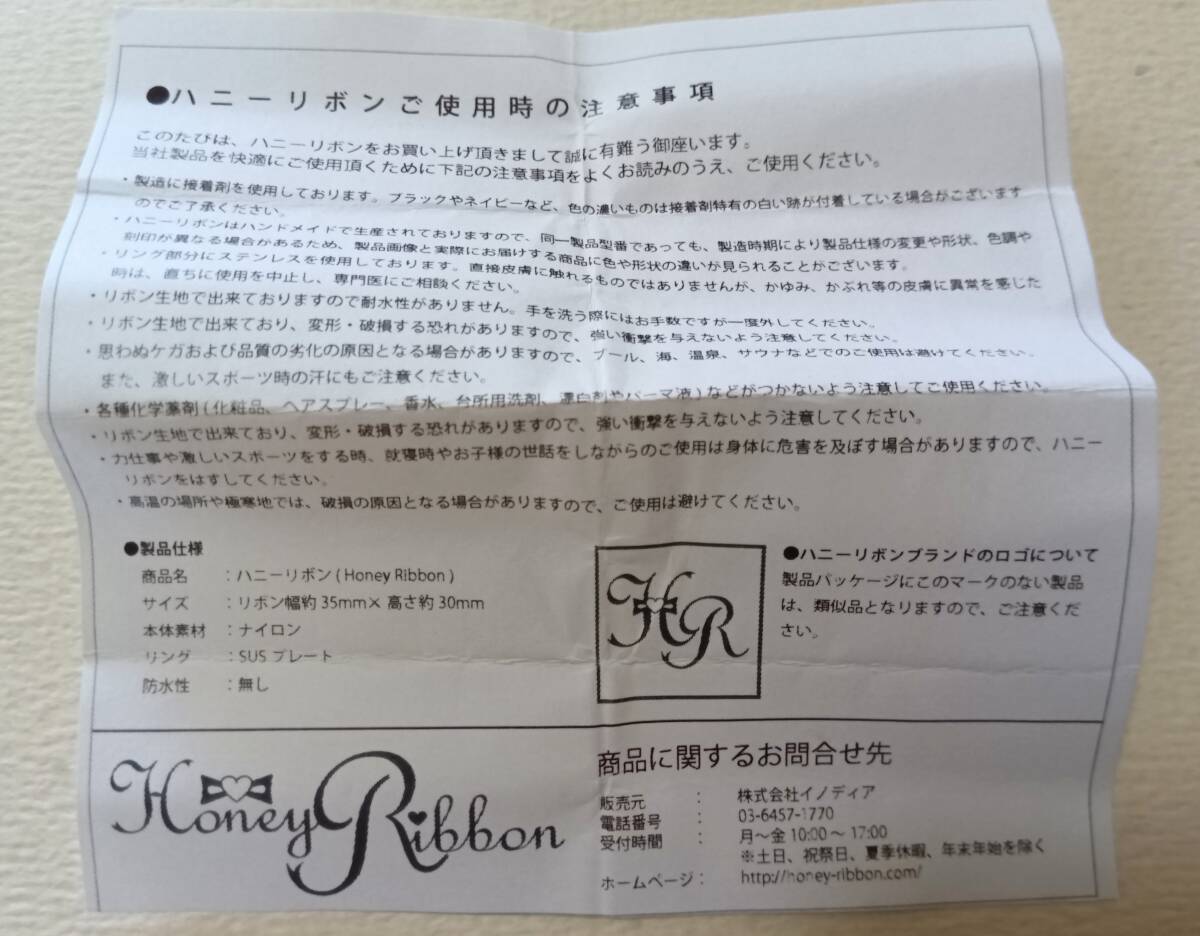 ●ハニーリボンご使用時の注意事項
このたびは、ハニーリボンをお買い上げ頂きまして誠に有難う御座います。
当社製品を快適にご使用頂くために下記の注意事項をよくお読みのうえ、ご使用ください。
・製造に接着剤を使用しております。ブラックやネイビーなど、色の濃いものは接着剤特有の白い跡が付着している場合がございます
のでご了承ください。
・ハニーリボンはハンドメイドで生産されておりますので、同一製品型番であっても、製造時期により製品仕様の変更や形状、色調や
刻印が異なる場合があるため、製品画像と実際にお届けする商品に色や形状の違いが見られることがございます。
・リング部分にステンレスを使用しております。直接皮膚に触れるものではありませんが、かゆみ、かぶれ等の皮膚に異常を感じた
時は、直ちに使用を中止し、専門医にご相談ください。
・リボン生地で出来ておりますので耐水性がありません。手を洗う際にはお手数ですが一度外してください。
・リボン生地で出来ており、変形・破損する恐れがありますので、強い衝撃を与えないよう注意してください。
・思わぬケガおよび品質の劣化の原因となる場合がありますので、プール、海、温泉、サウナなどでのご使用は避けてください。
また、激しいスポーツ時の汗にもご注意ください。
・各種化学薬剤(化粧品、ヘアスプレー、香水、台所用洗剤、漂白剤やパーマ液)などがつかないよう注意してご使用ください。
・リボン生地で出来ており、変形・破損する恐れがありますので、強い衝撃を与えないよう注意してください。
・力仕事や激しいスポーツをする時、就寝時やお子様の世話をしながらのご使用は身体に危害を及ぼす場合がありますので、ハニー
リボンをはずしてください。
・高温の場所や極寒地では、破損の原因となる場合がありますので、ご使用は避けてください。
●製品仕様
商品名 :ハニーリボン(Honey Ribbon)
サイズ :リボン幅約35mm×高さ約30mm
本体素材 :ナイロン
リング :SUSプレート
防水性 :無し
HR
●ハニーリボンブランドのロゴについて
製品パッケージにこのマークのない製品
は、類似品となりますので、ご注意くだ
さい。
Honey Ribbon
商品に関するお問合せ先
販売元 : 株式会社イノディア
電話番号 : 03-6457-1770
受付時間 : 月〜金 10:00〜17:00
※土日、祝祭日、夏季休暇、年末年始を除く
ホームページ: http://honey-ribbon.com/